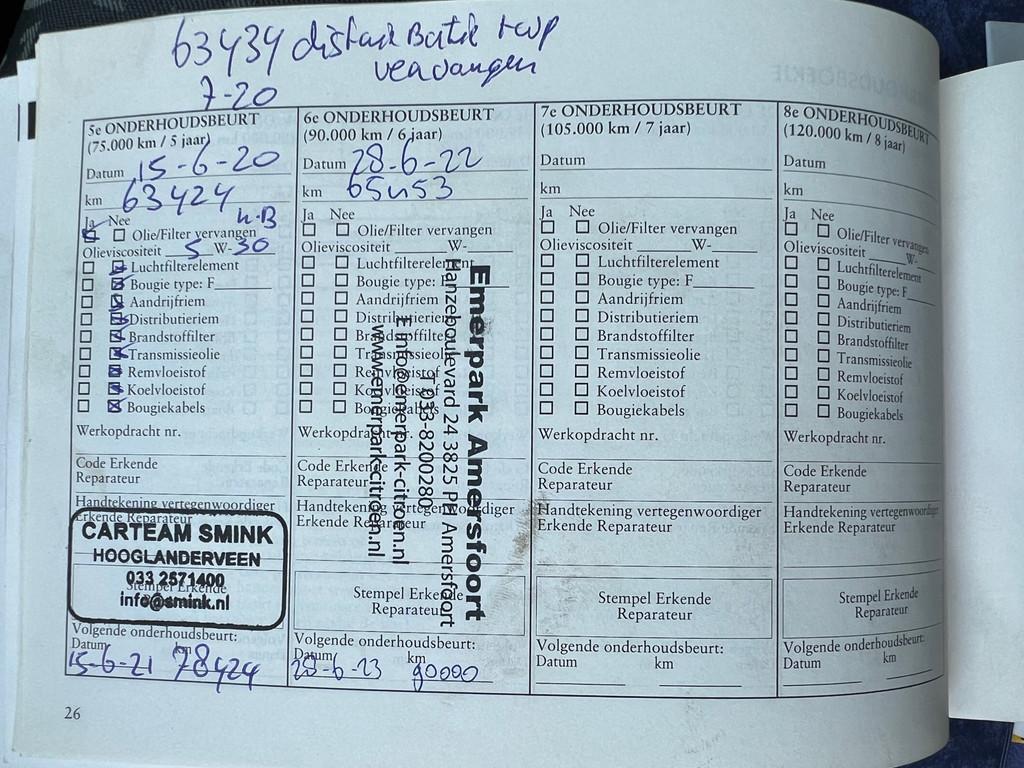 63434
7-20
5e ONDERHOUDSBEURT
(75.000 km / 5 jaar)
Datum 15-6-20
km 63424
Ja Nee
Olie/Filter vervangen
Olieviscositeit 5 W-30
Luchtfilterelement
Bougie type: F
Aandrijfriem
Distributieriem
Brandstoffilter
Transmissieolie
Remvloeistof
Koelvloeistof
Bougiekabels
Werkopdracht nr.
Code Erkende
Reparateur
Handtekening vertegenwoordiger
Erkende Reparateur
CARTEAM SMINK
HOOGLANDERVEEN
033 2571400
info@smink.nl
Stempel Erkende
Volgende onderhoudsbeurt:
Datum km
15-6-21 78424
6e ONDERHOUDSBEURT
(90.000 km / 6 jaar)
Datum 28-6-22
km 65453
Ja Nee
Olie/Filter vervangen
Olieviscositeit W-
Luchtfilterelement
Bougie type: F
Aandrijfriem
Distributieriem
Brandstoffilter
Transmissieolie
Remvloeistof
Koelvloeistof
Bougiekabels
Werkopdracht nr.
Code Erkende
Reparateur
Handtekening vertegenwoordiger
Erkende Reparateur
Emerpark Amersfoort
Hanzeboulevard 24 3825 PH Amersfoort
T 033-8200280
E info@emerpark-citroen.nl
www.emerpark-citroen.nl
Stempel Erkende
Reparateur
Volgende onderhoudsbeurt:
Datum km
28-6-23 90000
7e ONDERHOUDSBEURT
(105.000 km / 7 jaar)
Datum
km
Ja Nee
Olie/Filter vervangen
Olieviscositeit W-
Luchtfilterelement
Bougie type: F
Aandrijfriem
Distributieriem
Brandstoffilter
Transmissieolie
Remvloeistof
Koelvloeistof
Bougiekabels
Werkopdracht nr.
Code Erkende
Reparateur
Handtekening vertegenwoordiger
Erkende Reparateur
Stempel Erkende
Reparateur
Volgende onderhoudsbeurt:
Datum km
8e ONDERHOUDSBEURT
(120.000 km / 8 jaar)
Datum
km
Ja Nee
Olie/Filter vervangen
Olieviscositeit W-
Luchtfilterelement
Bougie type: F
Aandrijfriem
Distributieriem
Brandstoffilter
Transmissieolie
Remvloeistof
Koelvloeistof
Bougiekabels
Werkopdracht nr.
Code Erkende
Reparateur
Handtekening vertegenwoordiger
Erkende Reparateur
Stempel Erkende
Reparateur
Volgende onderhoudsbeurt:
Datum km
26